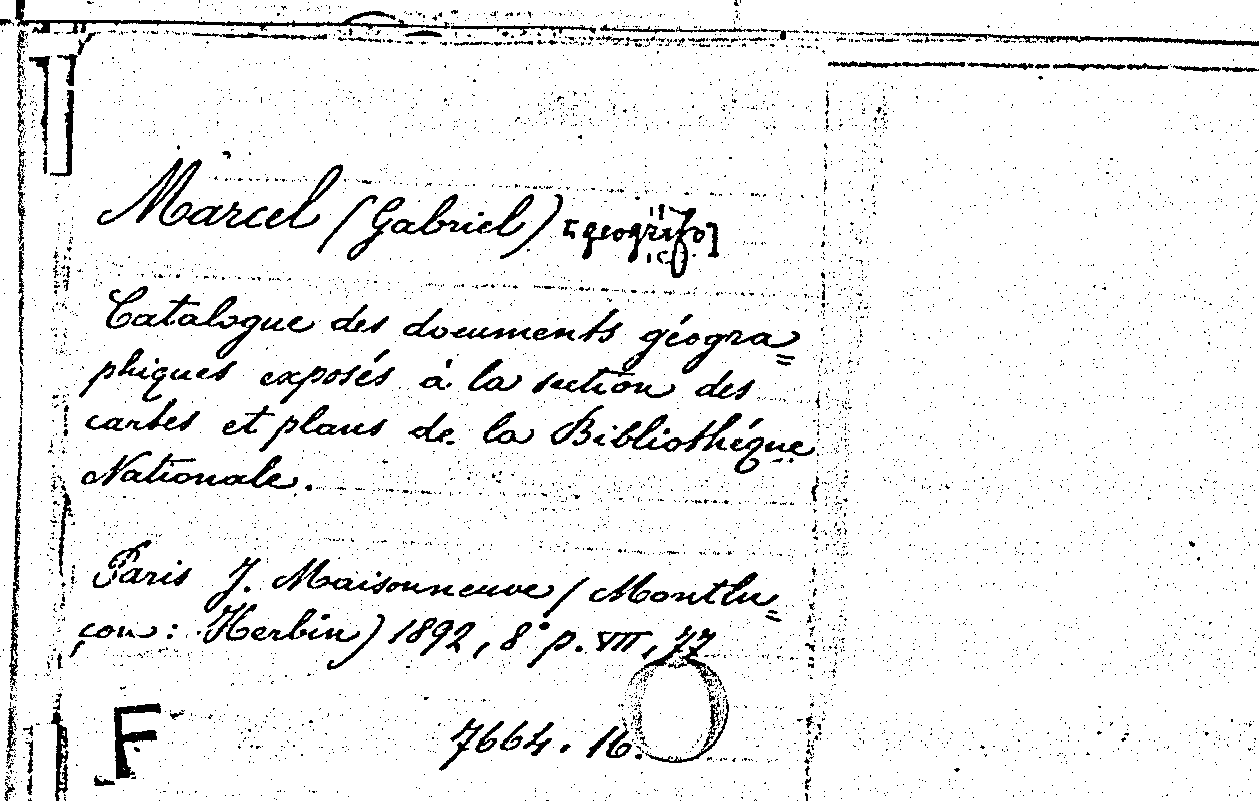 Marcel (Gabriel) [geografo]
Catalogue des documents géogra=
phiques exposés à la section des
cartes et plans de la Bibliothéque
Nationale.
Paris J. Maisonneuve (Montlu=
çon: Herbin) 1892, 8° p. VIII, 77
F 7664.16. O